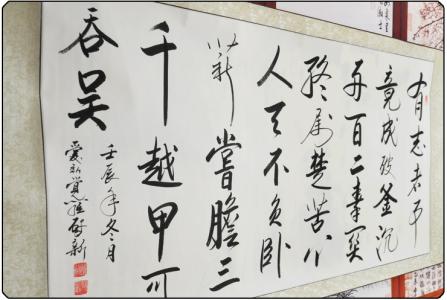 有志者事
竟成破釜沉
舟百二秦関
終属楚苦心
人天不負卧
薪嘗膽三
千越甲可
吞吴
壬辰年冬月
愛新覺羅新